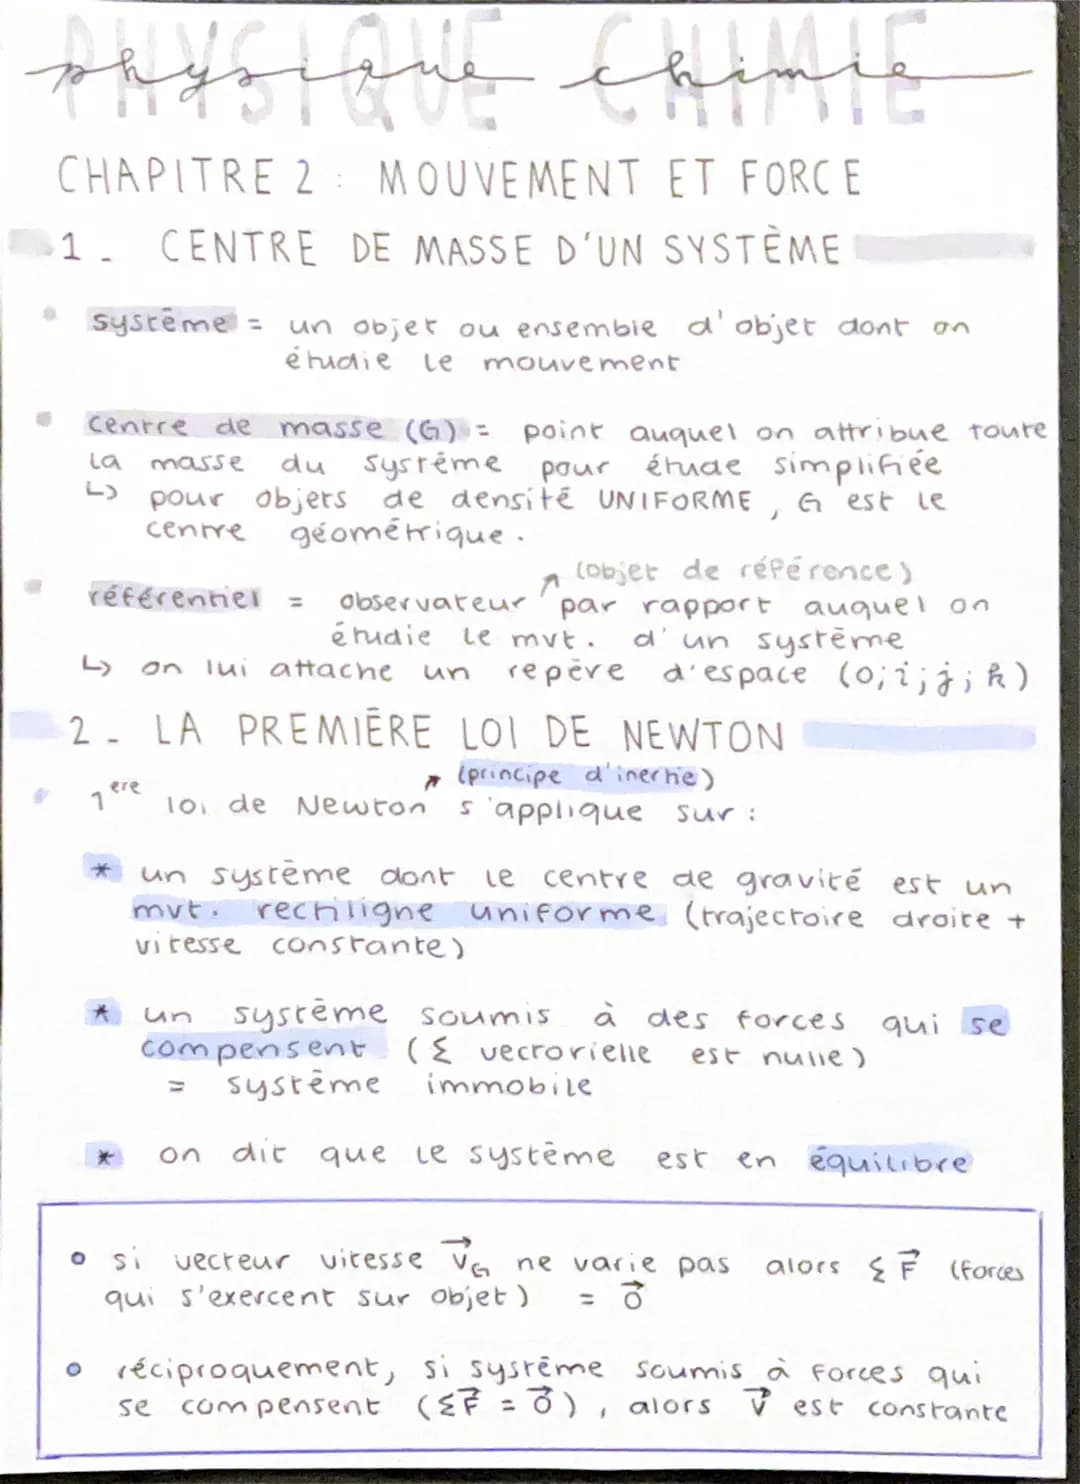 PHYSIQUE CHIMIE
physique chimie
CHAPITRE 2 : MOUVEMENT ET FORCE
1 - CENTRE DE MASSE D'UN SYSTÈME
système = un objet ou ensemble d'objet dont on
étudie le mouvement
centre de masse (G) = point auquel on attribue toute
la masse du système pour étude simplifiée
↳ pour objets de densité UNIFORME, G est le
centre géométrique.
↗ (objet de référence)
référentiel = observateur par rapport auquel on
étudie le mvt. d'un système
↳ on lui attache un repère d'espace (O;i;j;k)
2 - LA PREMIÈRE LOI DE NEWTON
↗ (principe d'inertie)
1ère loi de Newton s'applique sur :
* un système dont le centre de gravité est un
mvt. rectiligne uniforme (trajectoire droite +
vitesse constante)
* un système soumis à des forces qui se
compensent (Σ vectorielle est nulle)
= système immobile
* on dit que le système est en équilibre
o si vecteur vitesse v⃗G ne varie pas alors ΣF⃗ (forces
qui s'exercent sur objet) = 0⃗
o réciproquement, si système soumis à forces qui
se compensent (ΣF⃗ = 0⃗), alors v⃗ est constante